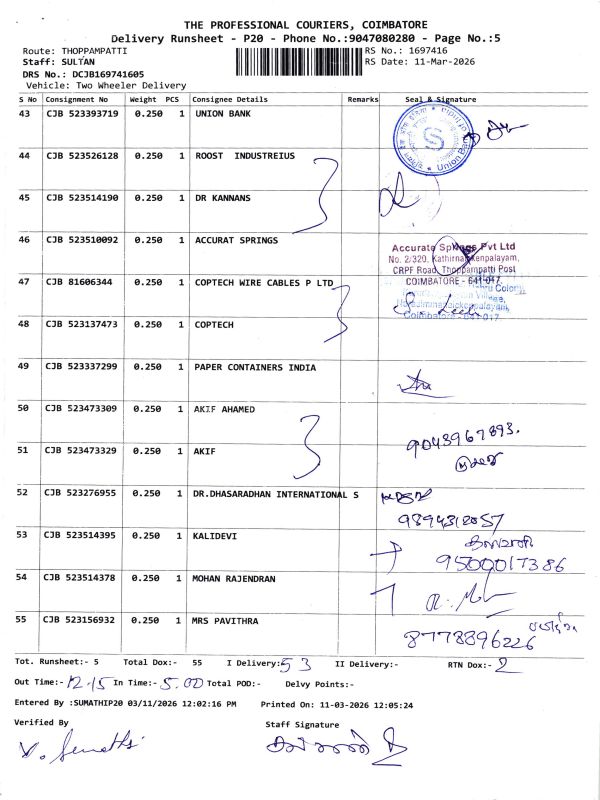 THE PROFESSIONAL COURIERS, COIMBATORE
Delivery Runsheet - P20 - Phone No.:9047080280 - Page No.:5
Route: THOPPAMPATTI
RS No.: 1697416
Staff: SULTAN
RS Date: 11-Mar-2026
DRS No.: DCJB169741605
Vehicle: Two Wheeler Delivery
S No Consignment No Weight PCS Consignee Details Remarks Seal & Signature
43 CJB 523393719 0.250 1 UNION BANK
44 CJB 523526128 0.250 1 ROOST INDUSTREIUS
45 CJB 523514190 0.250 1 DR KANNANS
46 CJB 523510092 0.250 1 ACCURAT SPRINGS
Accurate Springs Pvt Ltd
No. 2/320, Kathirnaickenpalayam,
CRPF Road, Thoppampatti Post
COIMBATORE - 641 017.
47 CJB 81606344 0.250 1 COPTECH WIRE CABLES P LTD
48 CJB 523137473 0.250 1 COPTECH
49 CJB 523337299 0.250 1 PAPER CONTAINERS INDIA
50 CJB 523473309 0.250 1 AKIF AHAMED
9043967893.
51 CJB 523473329 0.250 1 AKIF
52 CJB 523276955 0.250 1 DR.DHASARADHAN INTERNATIONAL S
9894312057
53 CJB 523514395 0.250 1 KALIDEVI
9500017386
54 CJB 523514378 0.250 1 MOHAN RAJENDRAN
55 CJB 523156932 0.250 1 MRS PAVITHRA
8778896226
Tot. Runsheet:- 5 Total Dox:- 55 I Delivery:- 53 II Delivery:- RTN Dox:- 2
Out Time:- 12.15 In Time:- 5.00 Total POD:- Delvy Points:-
Entered By :SUMATHIP20 03/11/2026 12:02:16 PM Printed On: 11-03-2026 12:05:24
Verified By Staff Signature
V. Sumathi